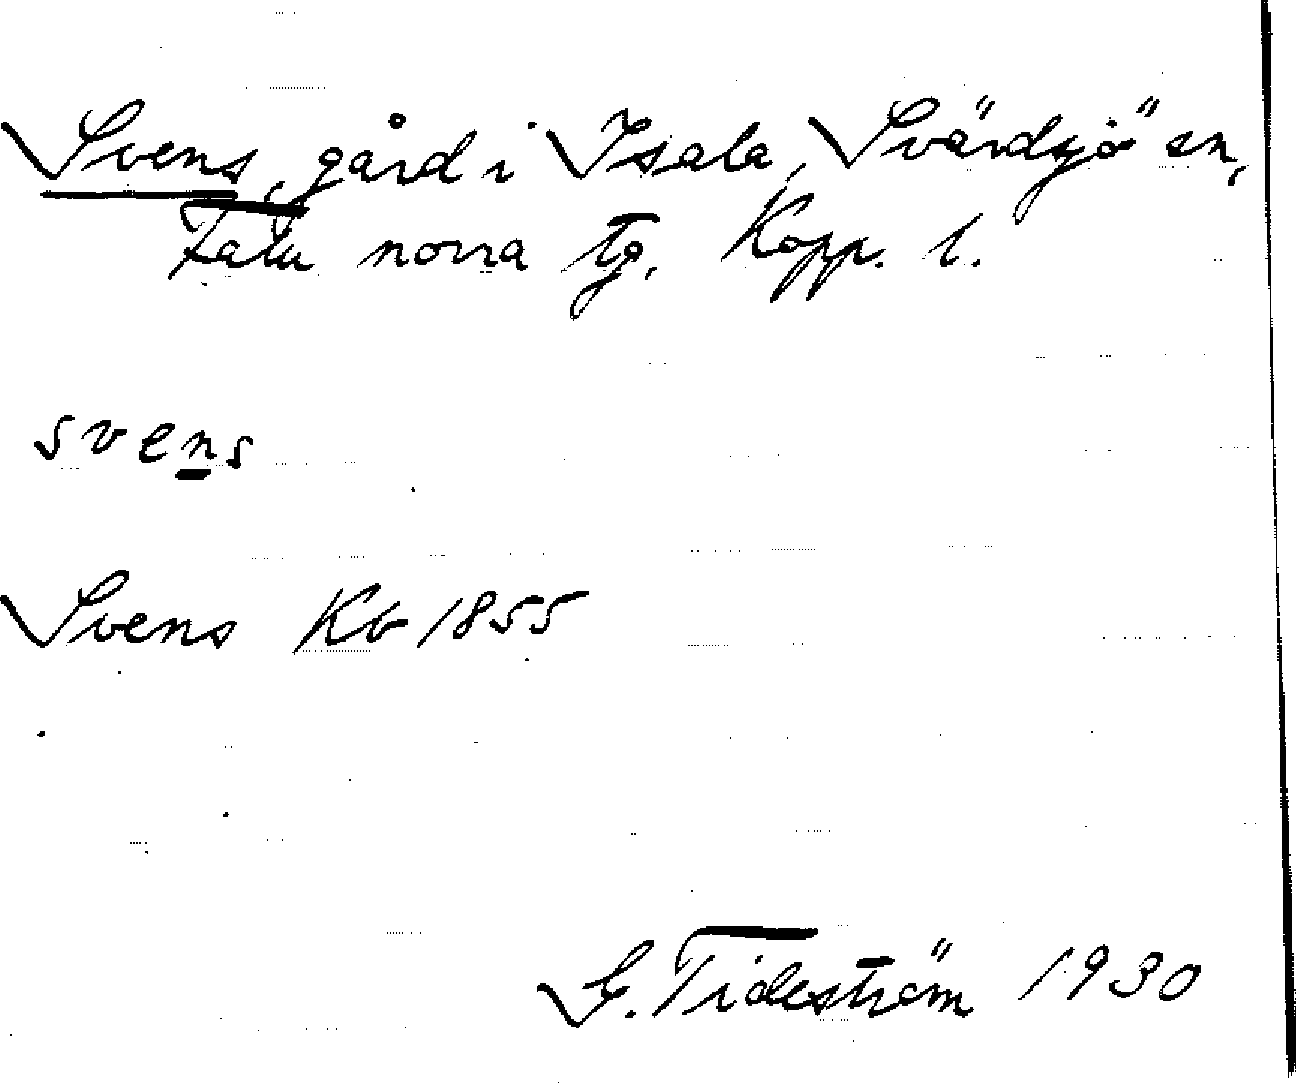 Svens, gård i Isala, Svärdsjö sn,
Falu norra tg, Kopp. l.
svens
Svens Kb 1855
G. Tideström 1930